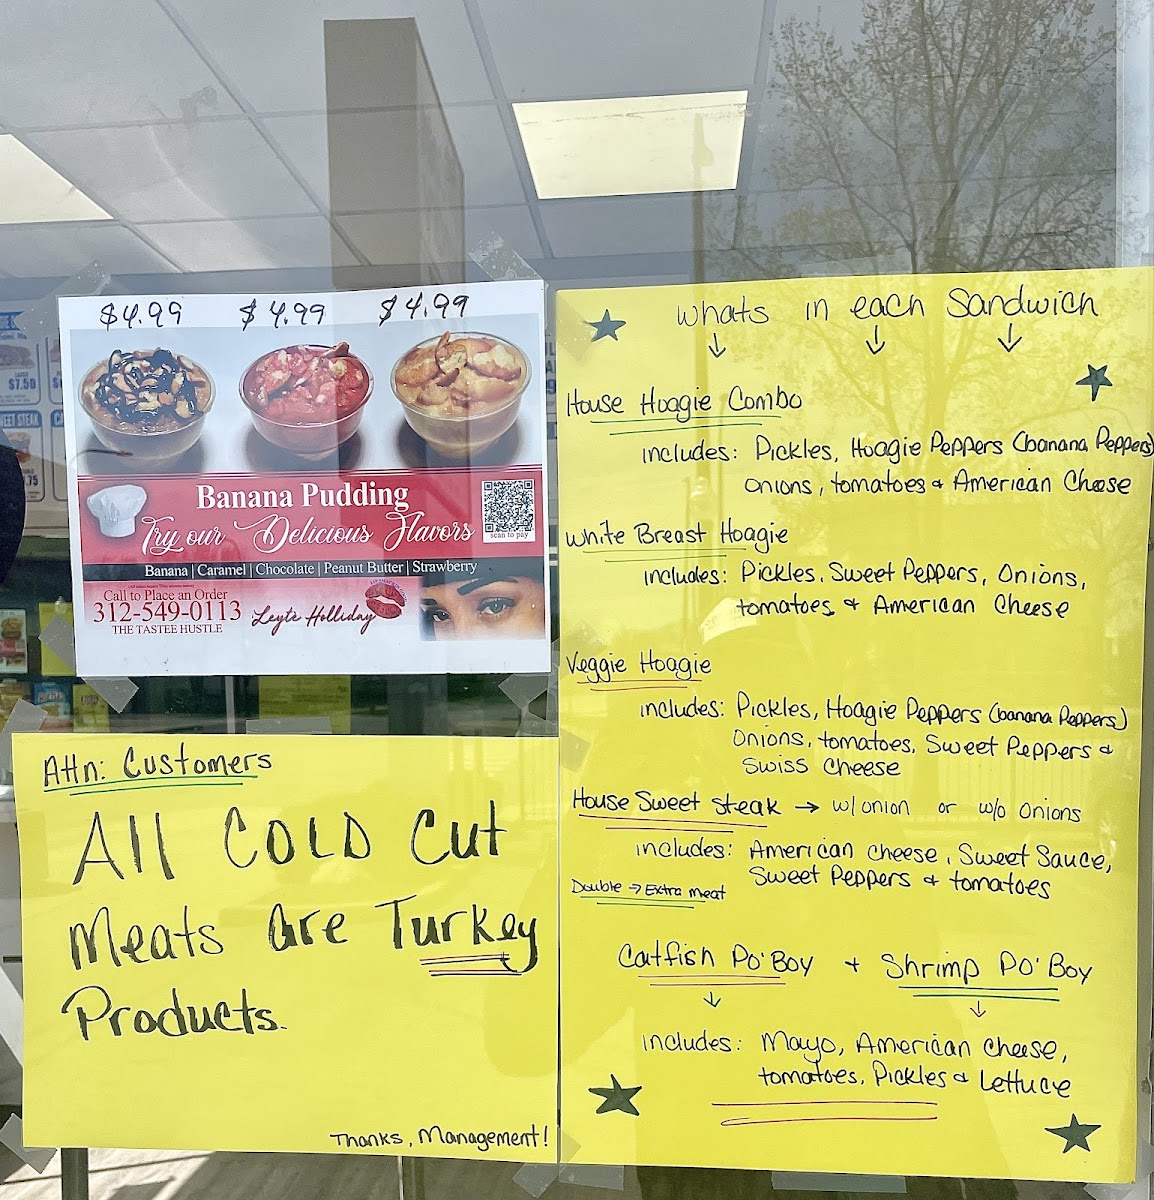 $4.99 $4.99 $4.99
Banana Pudding
Try our Delicious Flavors
scan to pay
Banana | Caramel | Chocolate | Peanut Butter | Strawberry
Call to Place an Order
312-549-0113
THE TASTEE HUSTLE
Leyte Holliday
Attn: Customers
All COLD Cut
Meats are Turkey
Products.
Thanks, Management!
whats in each Sandwich
House Hoagie Combo
includes: Pickles, Hoagie Peppers (banana Peppers)
Onions, tomatoes & American Cheese
White Breast Hoagie
includes: Pickles, Sweet Peppers, Onions,
tomatoes & American Cheese
Veggie Hoagie
includes: Pickles, Hoagie Peppers (banana Peppers)
Onions, tomatoes, Sweet Peppers &
Swiss Cheese
House Sweet Steak → w/ onion or w/o onions
includes: American cheese, Sweet Sauce,
Sweet Peppers & tomatoes
Double → Extra meat
Catfish Po'Boy + Shrimp Po'Boy
includes: Mayo, American cheese,
tomatoes, Pickles & Lettuce
$7.50